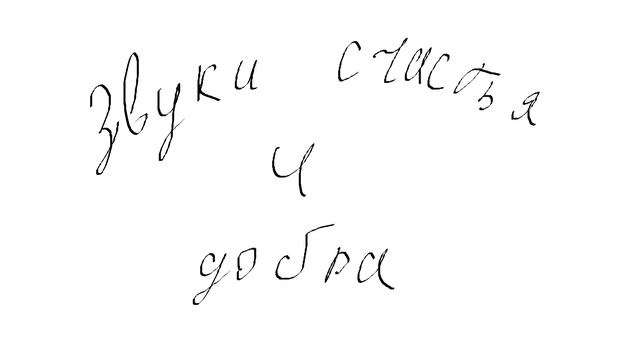 звуки счастья
и
добра